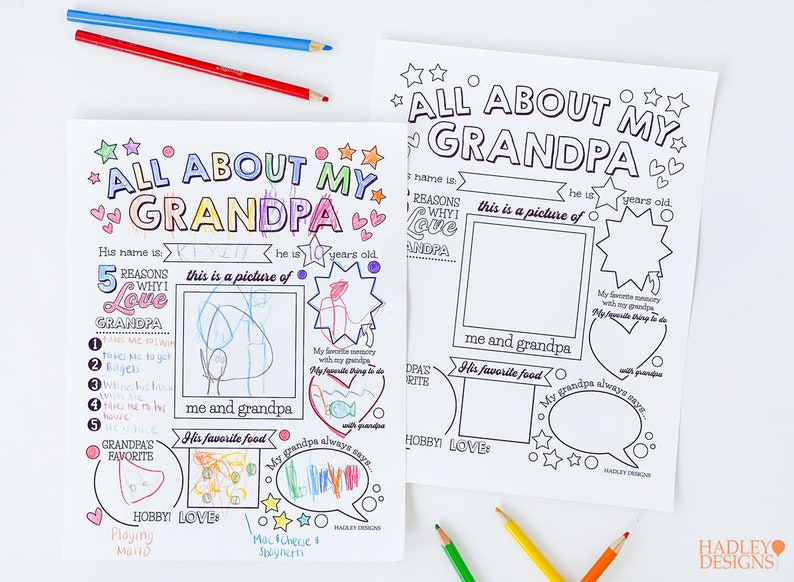 ALL ABOUT MY
GRANDPA
His name is: he is 10 years old.
5 REASONS
WHY I
Love
GRANDPA
1 takes me to swim
2 takes me to get
Bagels
3 Washes his truck
with me
4 takes me to his
house
5 He is nice
this is a picture of
me and grandpa
My favorite memory
with my grandpa
My favorite thing to do
with grandpa
GRANDPA'S
FAVORITE
HOBBY!
Playing
Mario
His favorite food
LOVE:
Mac & Cheese &
Spaghetti
My grandpa always says...
HADLEY DESIGNS
ALL ABOUT MY
GRANDPA
name is: he is years old.
REASONS
WHY I
Love
GRANDPA
this is a picture of
me and grandpa
My favorite memory
with my grandpa
My favorite thing to do
with grandpa
FAVORITE
HOBBY!
His favorite food
LOVE:
My grandpa always says...
HADLEY DESIGNS
HADLEY
DESIGNS